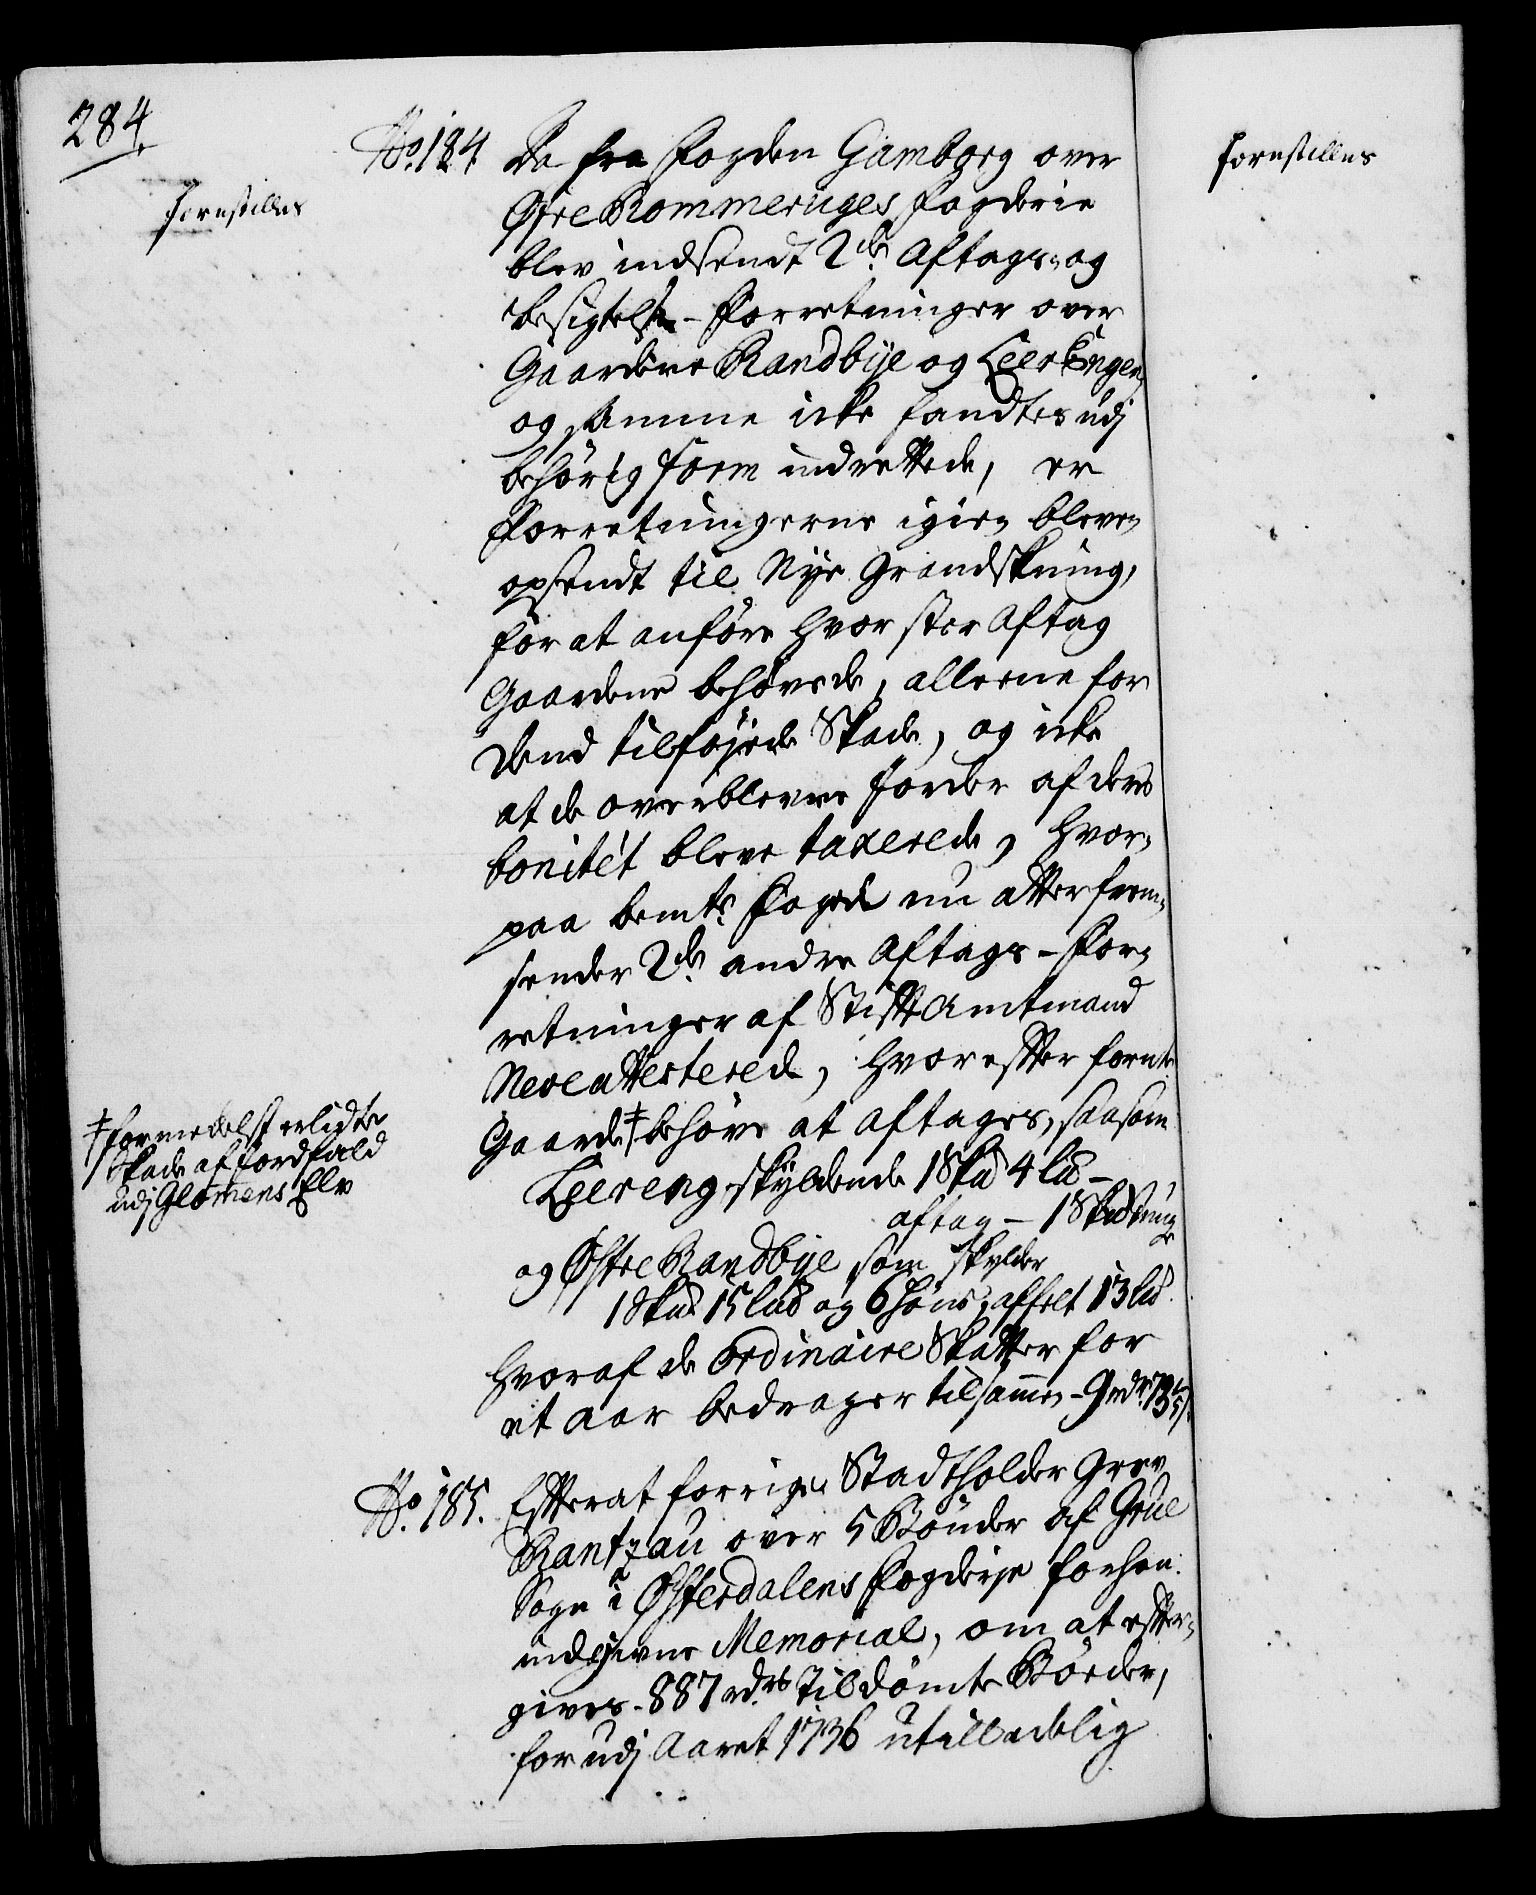 284
forestilles
No. 184 Da fra Fogden Gamborg over
Øfre Rommeriges Fogderie
blev indsendt 2de Aftags- og
besigtelse-Forretninger over
Gaardene Randbÿe og Leer Engen
og samme icke fandtes udj
behörig form indrettede, er
Forretningerne igien bleven
opsendt til Nÿe Grandskning,
for at anföre hvor stor Aftag
Gaardene behövede, alleene for
dend tilföjede Skade, og icke
at de overblevne Jorder af deris
bonitét bleve taxerede, hvor-
paa bemte Foged nu atter frem-
sender 2de andre Aftags-For-
retninger af Stifft Amtmand
Neve attesterede, hvorefter fornte
Gaarde ‡ behöve at aftages, saasom
‡ formedelst erlidte
Skade af Jordfald
udj Glommens Elv
Leereng skyldende 1 Skd 4 lid -
aftag - 1 Skdtunge
og Østre Randbÿe som skylder
1 Skd 15 lid og 6 höns, affelt 13 lid
hvoraf de Ordinaire Skatter for
et aar bedrager tilsammen - 9 rdr
No. 185. Efterat forrige Stadtholder Grev
Rantzau over 5 Bönder af Grue
Sogn i Østerdalens Fogderje forhen
indgivne Memorial, om at efter-
gives - 887 rdrs Tildömte Böeder,
for udj Aaret 1736 utilladelig
forestilles